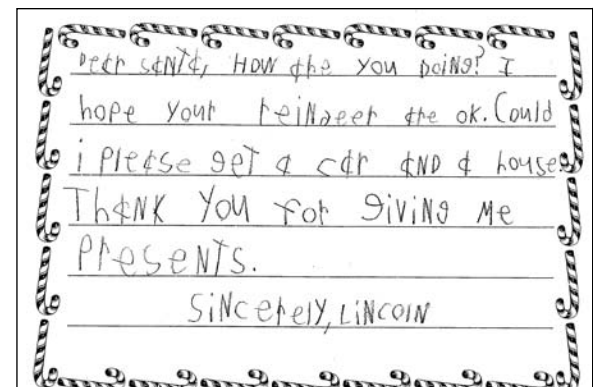 Dear Santa, How are you Doing? I
hope your reindeer are ok. Could
i please get a car AND a house.
Thank You for giving Me
Presents.
Sincerely, Lincoln